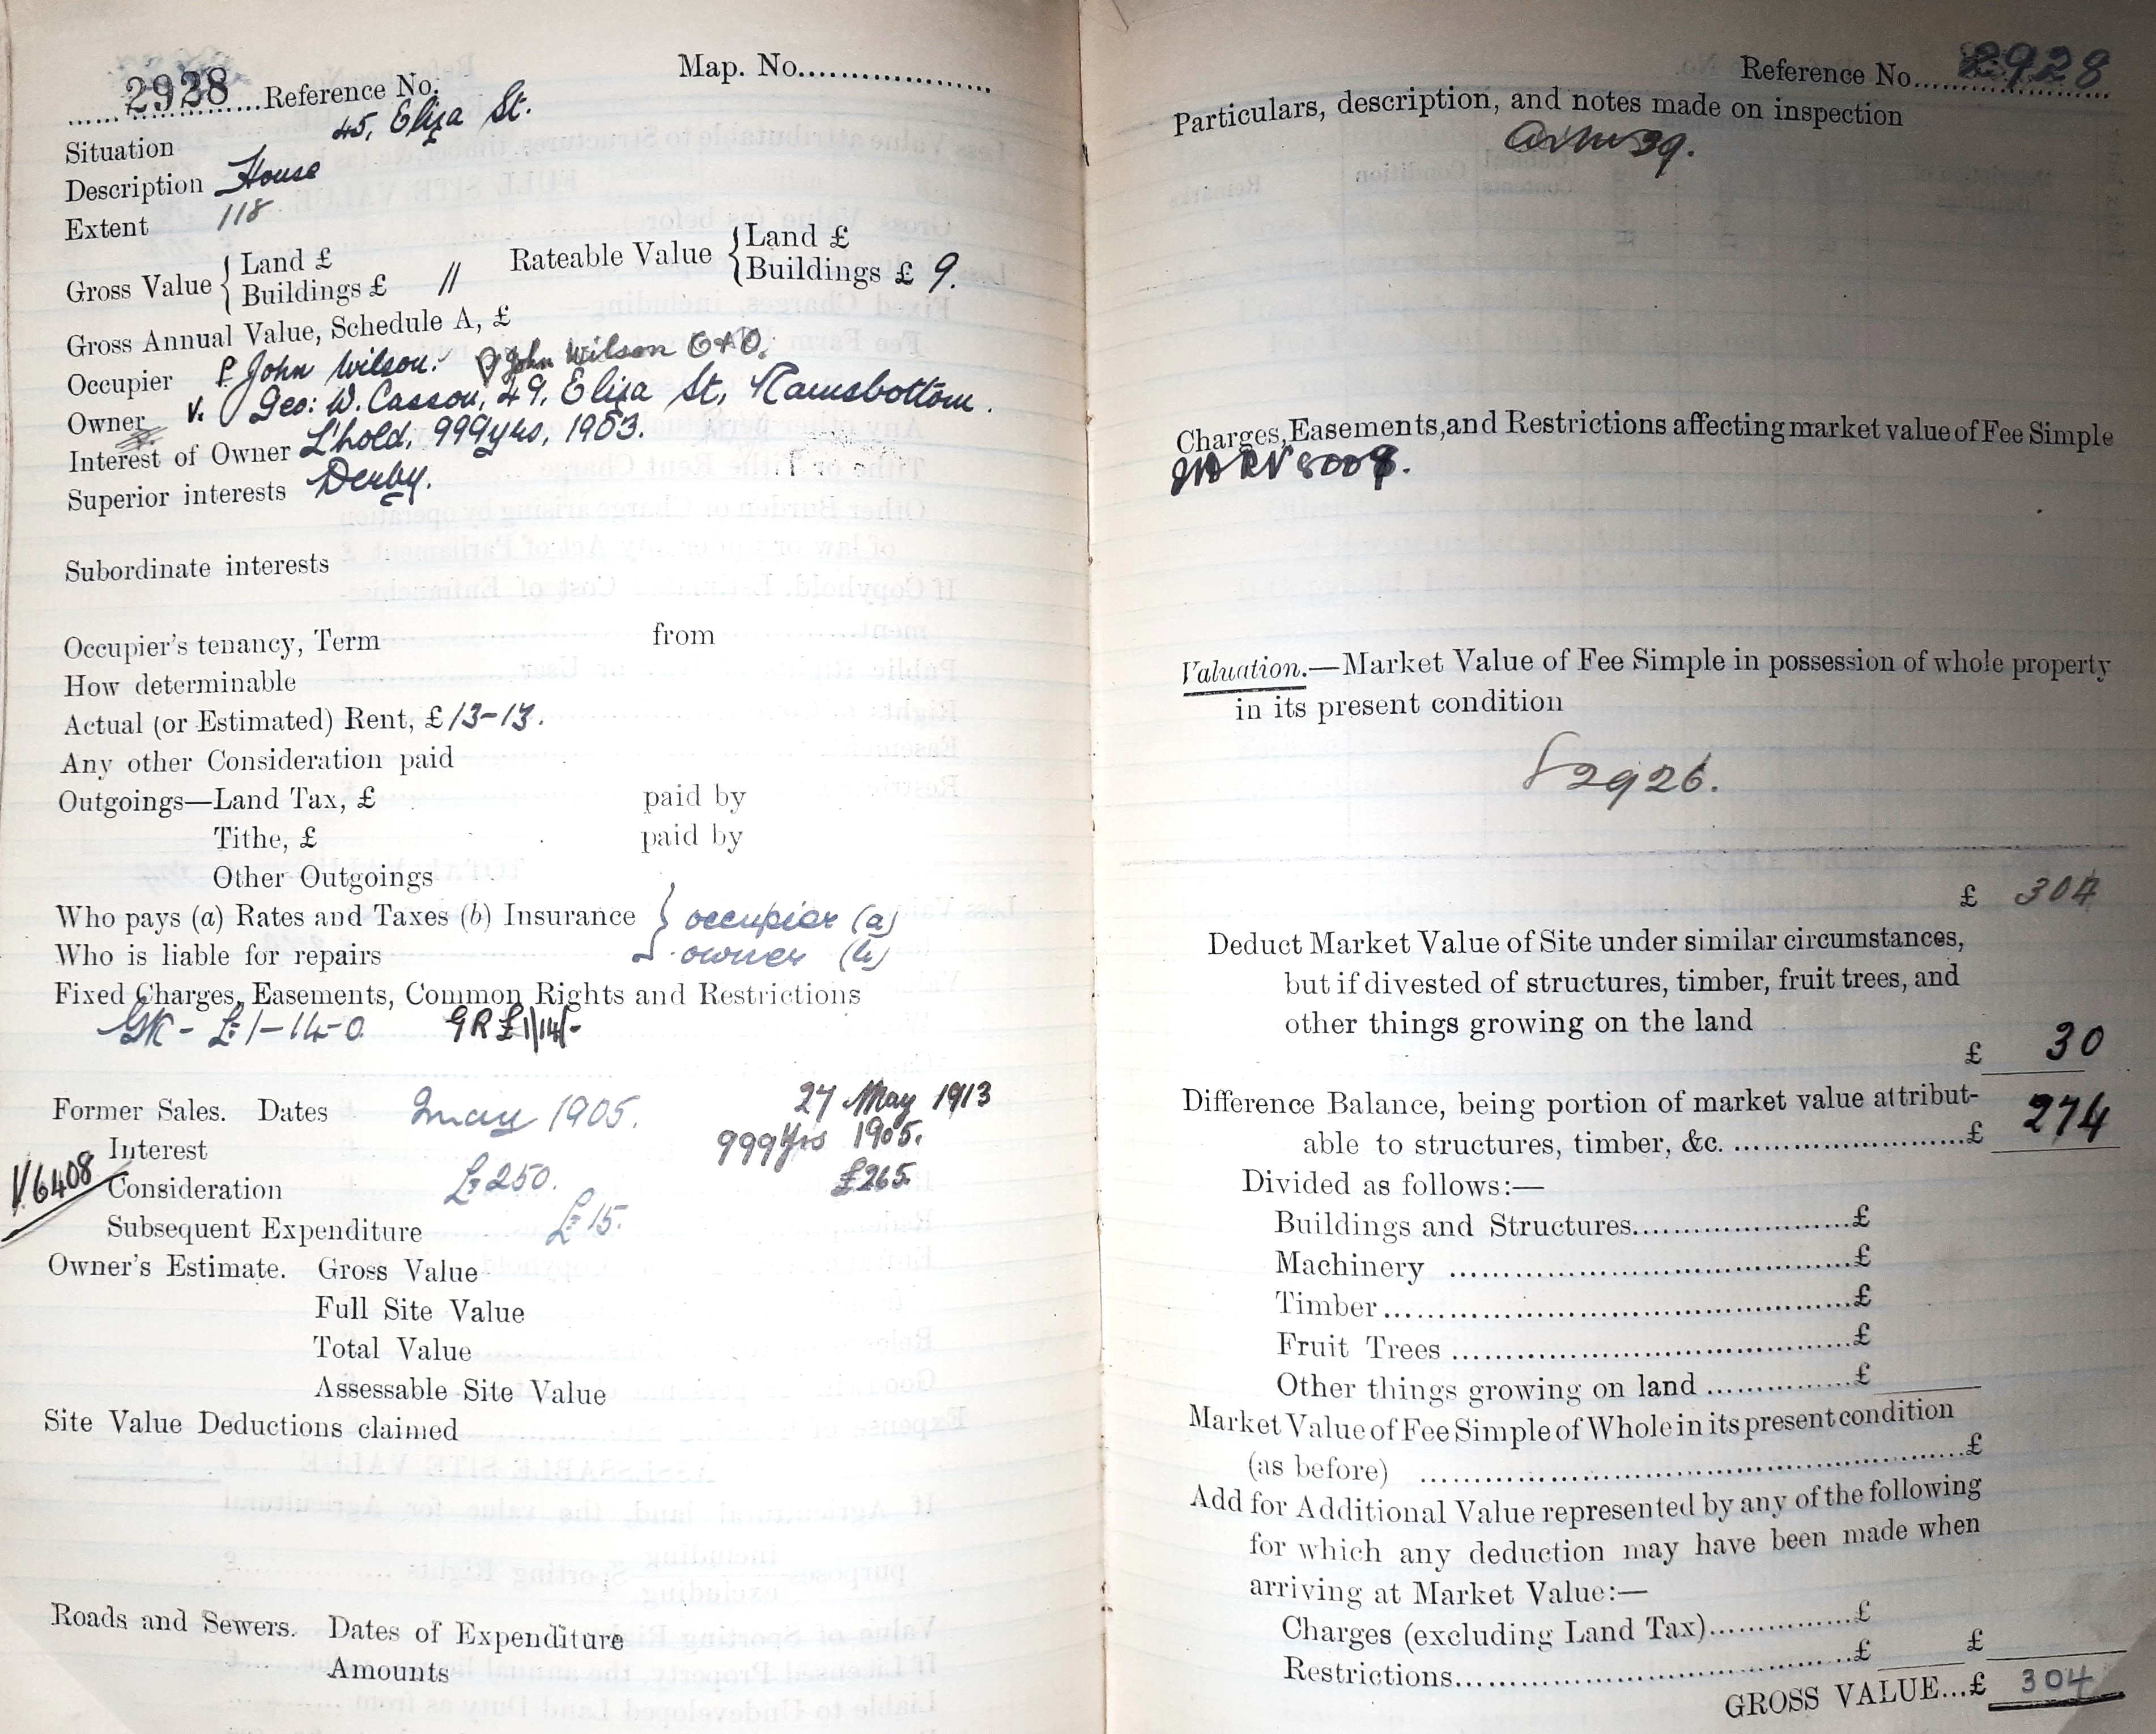 2928 Reference No. Map. No.
Situation 45, Eliza St.
Description House
Extent 118
Gross Value { Land £ Rateable Value { Land £
Buildings £ 11 Buildings £ 9.
Gross Annual Value, Schedule A, £
Occupier P. John Wilson. John Wilson O & O.
Owner V. Geo: W. Casson, 49, Eliza St, Ramsbottom.
Interest of Owner L'hold, 999yrs, 1903.
Superior interests Derby.
Subordinate interests
Occupier's tenancy, Term from
How determinable
Actual (or Estimated) Rent, £ 13-13.
Any other Consideration paid
Outgoings—Land Tax, £ paid by
Tithe, £ paid by
Other Outgoings
Who pays (a) Rates and Taxes (b) Insurance } occupier (a)
Who is liable for repairs owner (b)
Fixed Charges, Easements, Common Rights and Restrictions
GR - £1-14-0 GR £1/14/-
Former Sales. Dates May 1905. 27 May 1913
Interest 999 Yrs 1905.
V.6408 Consideration £250. £265.
Subsequent Expenditure £15.
Owner's Estimate. Gross Value
Full Site Value
Total Value
Assessable Site Value
Site Value Deductions claimed
Roads and Sewers. Dates of Expenditure
Amounts
Reference No. 2928
Particulars, description, and notes made on inspection
39.
Charges, Easements, and Restrictions affecting market value of Fee Simple
Valuation.—Market Value of Fee Simple in possession of whole property
in its present condition
2926.
£ 304
Deduct Market Value of Site under similar circumstances,
but if divested of structures, timber, fruit trees, and
other things growing on the land
£ 30
Difference Balance, being portion of market value attribut-
able to structures, timber, &c. £ 274
Divided as follows:—
Buildings and Structures £
Machinery £
Timber £
Fruit Trees £
Other things growing on land £
Market Value of Fee Simple of Whole in its present condition
(as before) £
Add for Additional Value represented by any of the following
for which any deduction may have been made when
arriving at Market Value:—
Charges (excluding Land Tax) £
Restrictions £ £
GROSS VALUE...£ 304